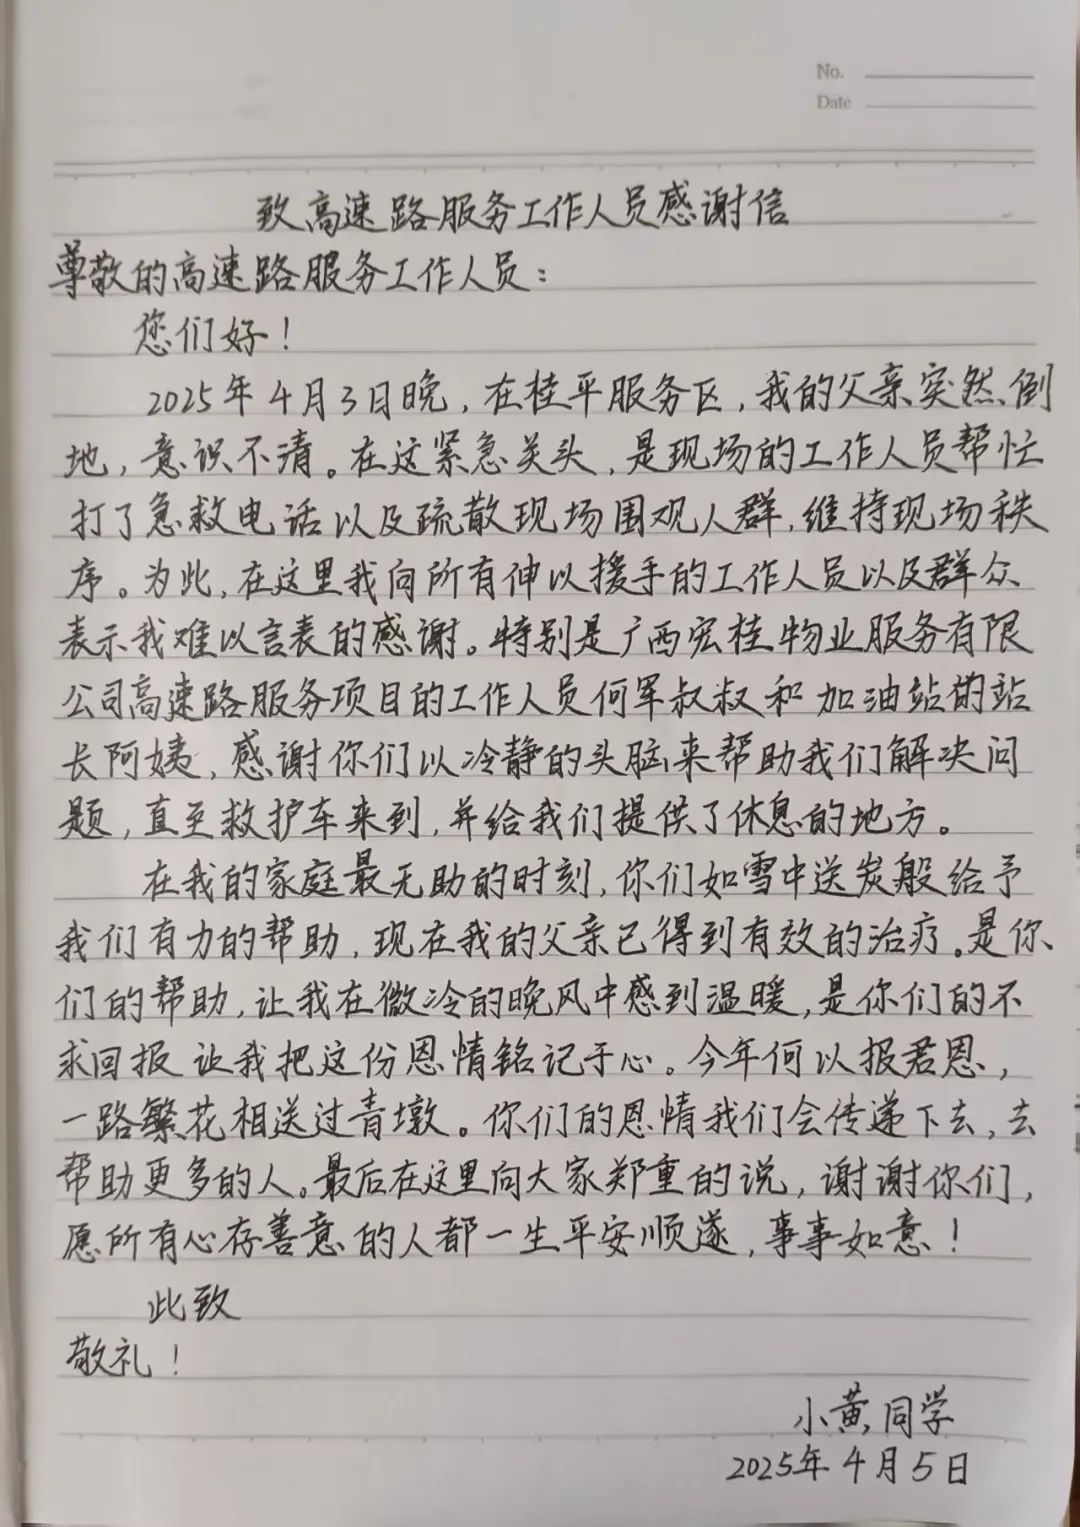 No.
Date
致高速路服务工作人员感谢信
尊敬的高速路服务工作人员：
您们好！
2025年4月3日晚，在桂平服务区，我的父亲突然倒
地，意识不清。在这紧急关头，是现场的工作人员帮忙
打了急救电话以及疏散现场围观人群，维持现场秩
序。为此，在这里我向所有伸以援手的工作人员以及群众
表示我难以言表的感谢。特别是广西宏桂物业服务有限
公司高速路服务项目的工作人员何军叔叔和加油站的站
长阿姨，感谢你们以冷静的头脑来帮助我们解决问
题，直至救护车来到，并给我们提供了休息的地方。
在我的家庭最无助的时刻，你们如雪中送炭般给予
我们有力的帮助，现在我的父亲已得到有效的治疗。是你
们的帮助，让我在微冷的晚风中感到温暖，是你们的不
求回报 让我把这份恩情铭记于心。今年何以报君恩，
一路繁花相送过青墩。你们的恩情我们会传递下去，去
帮助更多的人。最后在这里向大家郑重的说，谢谢你们，
愿所有心存善意的人都一生平安顺遂，事事如意！
此致
敬礼！
小黄同学
2025年4月5日